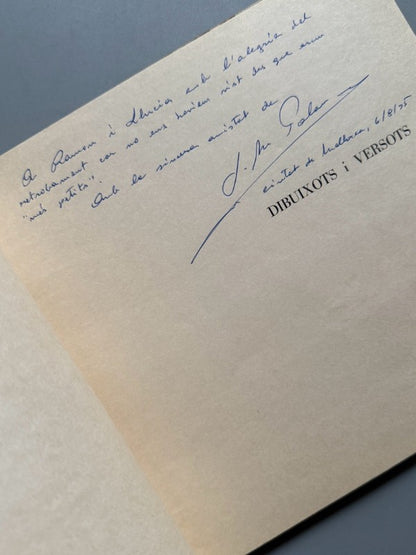 A Ramon i Llúcia amb l'alegria del
retrobament car no ens havíem vist des que erem
"més petits".
Amb la sincera amistat de
J. M. Palau
ciutat de Mallorca, 6/8/75
DIBUIXOTS i VERSOTS